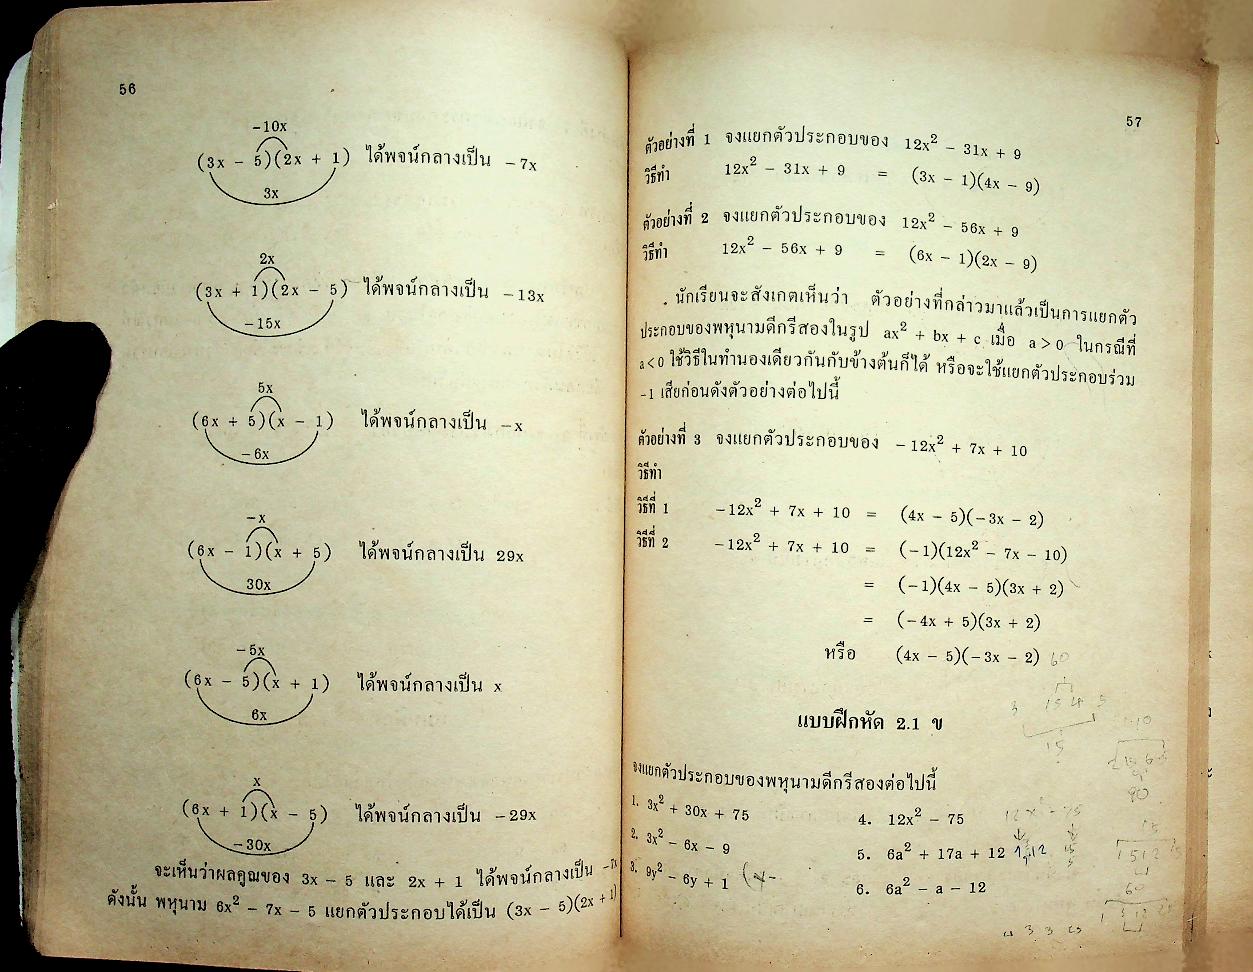 56
-10x
(3x - 5)(2x + 1) ได้พจน์กลางเป็น -7x
3x
2x
(3x + 1)(2x - 5) ได้พจน์กลางเป็น -13x
-15x
5x
(6x + 5)(x - 1) ได้พจน์กลางเป็น -x
-6x
-x
(6x - 1)(x + 5) ได้พจน์กลางเป็น 29x
30x
-5x
(6x - 5)(x + 1) ได้พจน์กลางเป็น x
6x
x
(6x + 1)(x - 5) ได้พจน์กลางเป็น -29x
-30x
จะเห็นว่าผลคูณของ 3x - 5 และ 2x + 1 ได้พจน์กลางเป็น -7x
ดังนั้น พหุนาม 6x² - 7x - 5 แยกตัวประกอบได้เป็น (3x - 5)(2x + 1)
57
ตัวอย่างที่ 1 จงแยกตัวประกอบของ 12x² - 31x + 9
วิธีทำ 12x² - 31x + 9 = (3x - 1)(4x - 9)
ตัวอย่างที่ 2 จงแยกตัวประกอบของ 12x² - 56x + 9
วิธีทำ 12x² - 56x + 9 = (6x - 1)(2x - 9)
นักเรียนจะสังเกตเห็นว่า ตัวอย่างที่กล่าวมาแล้วเป็นการแยกตัว
ประกอบของพหุนามดีกรีสองในรูป ax² + bx + c เมื่อ a > 0 ในกรณีที่
a < 0 ใช้วิธีในทำนองเดียวกันกับข้างต้นก็ได้ หรือจะใช้แยกตัวประกอบร่วม
-1 เสียก่อนดังตัวอย่างต่อไปนี้
ตัวอย่างที่ 3 จงแยกตัวประกอบของ -12x² + 7x + 10
วิธีทำ
วิธีที่ 1 -12x² + 7x + 10 = (4x - 5)(-3x - 2)
วิธีที่ 2 -12x² + 7x + 10 = (-1)(12x² - 7x - 10)
= (-1)(4x - 5)(3x + 2)
= (-4x + 5)(3x + 2)
หรือ (4x - 5)(-3x - 2) 60
แบบฝึกหัด 2.1 ข
จงแยกตัวประกอบของพหุนามดีกรีสองต่อไปนี้
1. 3x² + 30x + 75
2. 3x² - 6x - 9
3. 9y² - 6y + 1
4. 12x² - 75
5. 6a² + 17a + 12
6. 6a² - a - 12